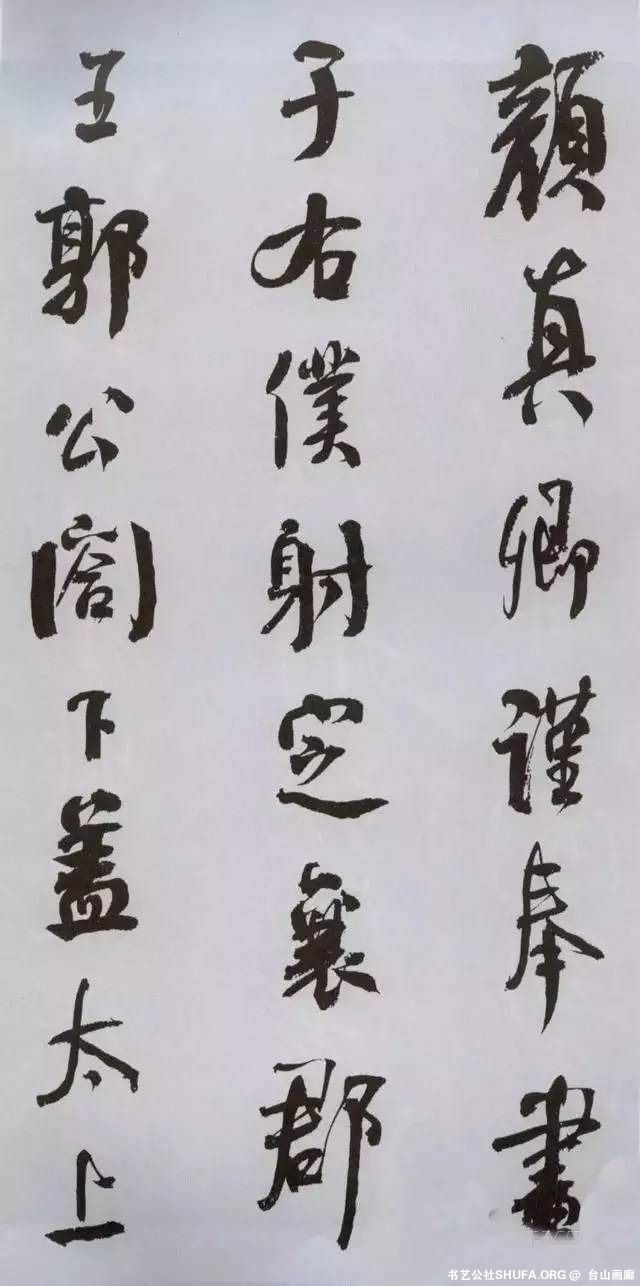 顏真卿謹奉書
于右僕射定襄郡
王郭公閤下蓋太上
书艺公社SHUFA.ORG @ 台山画廊